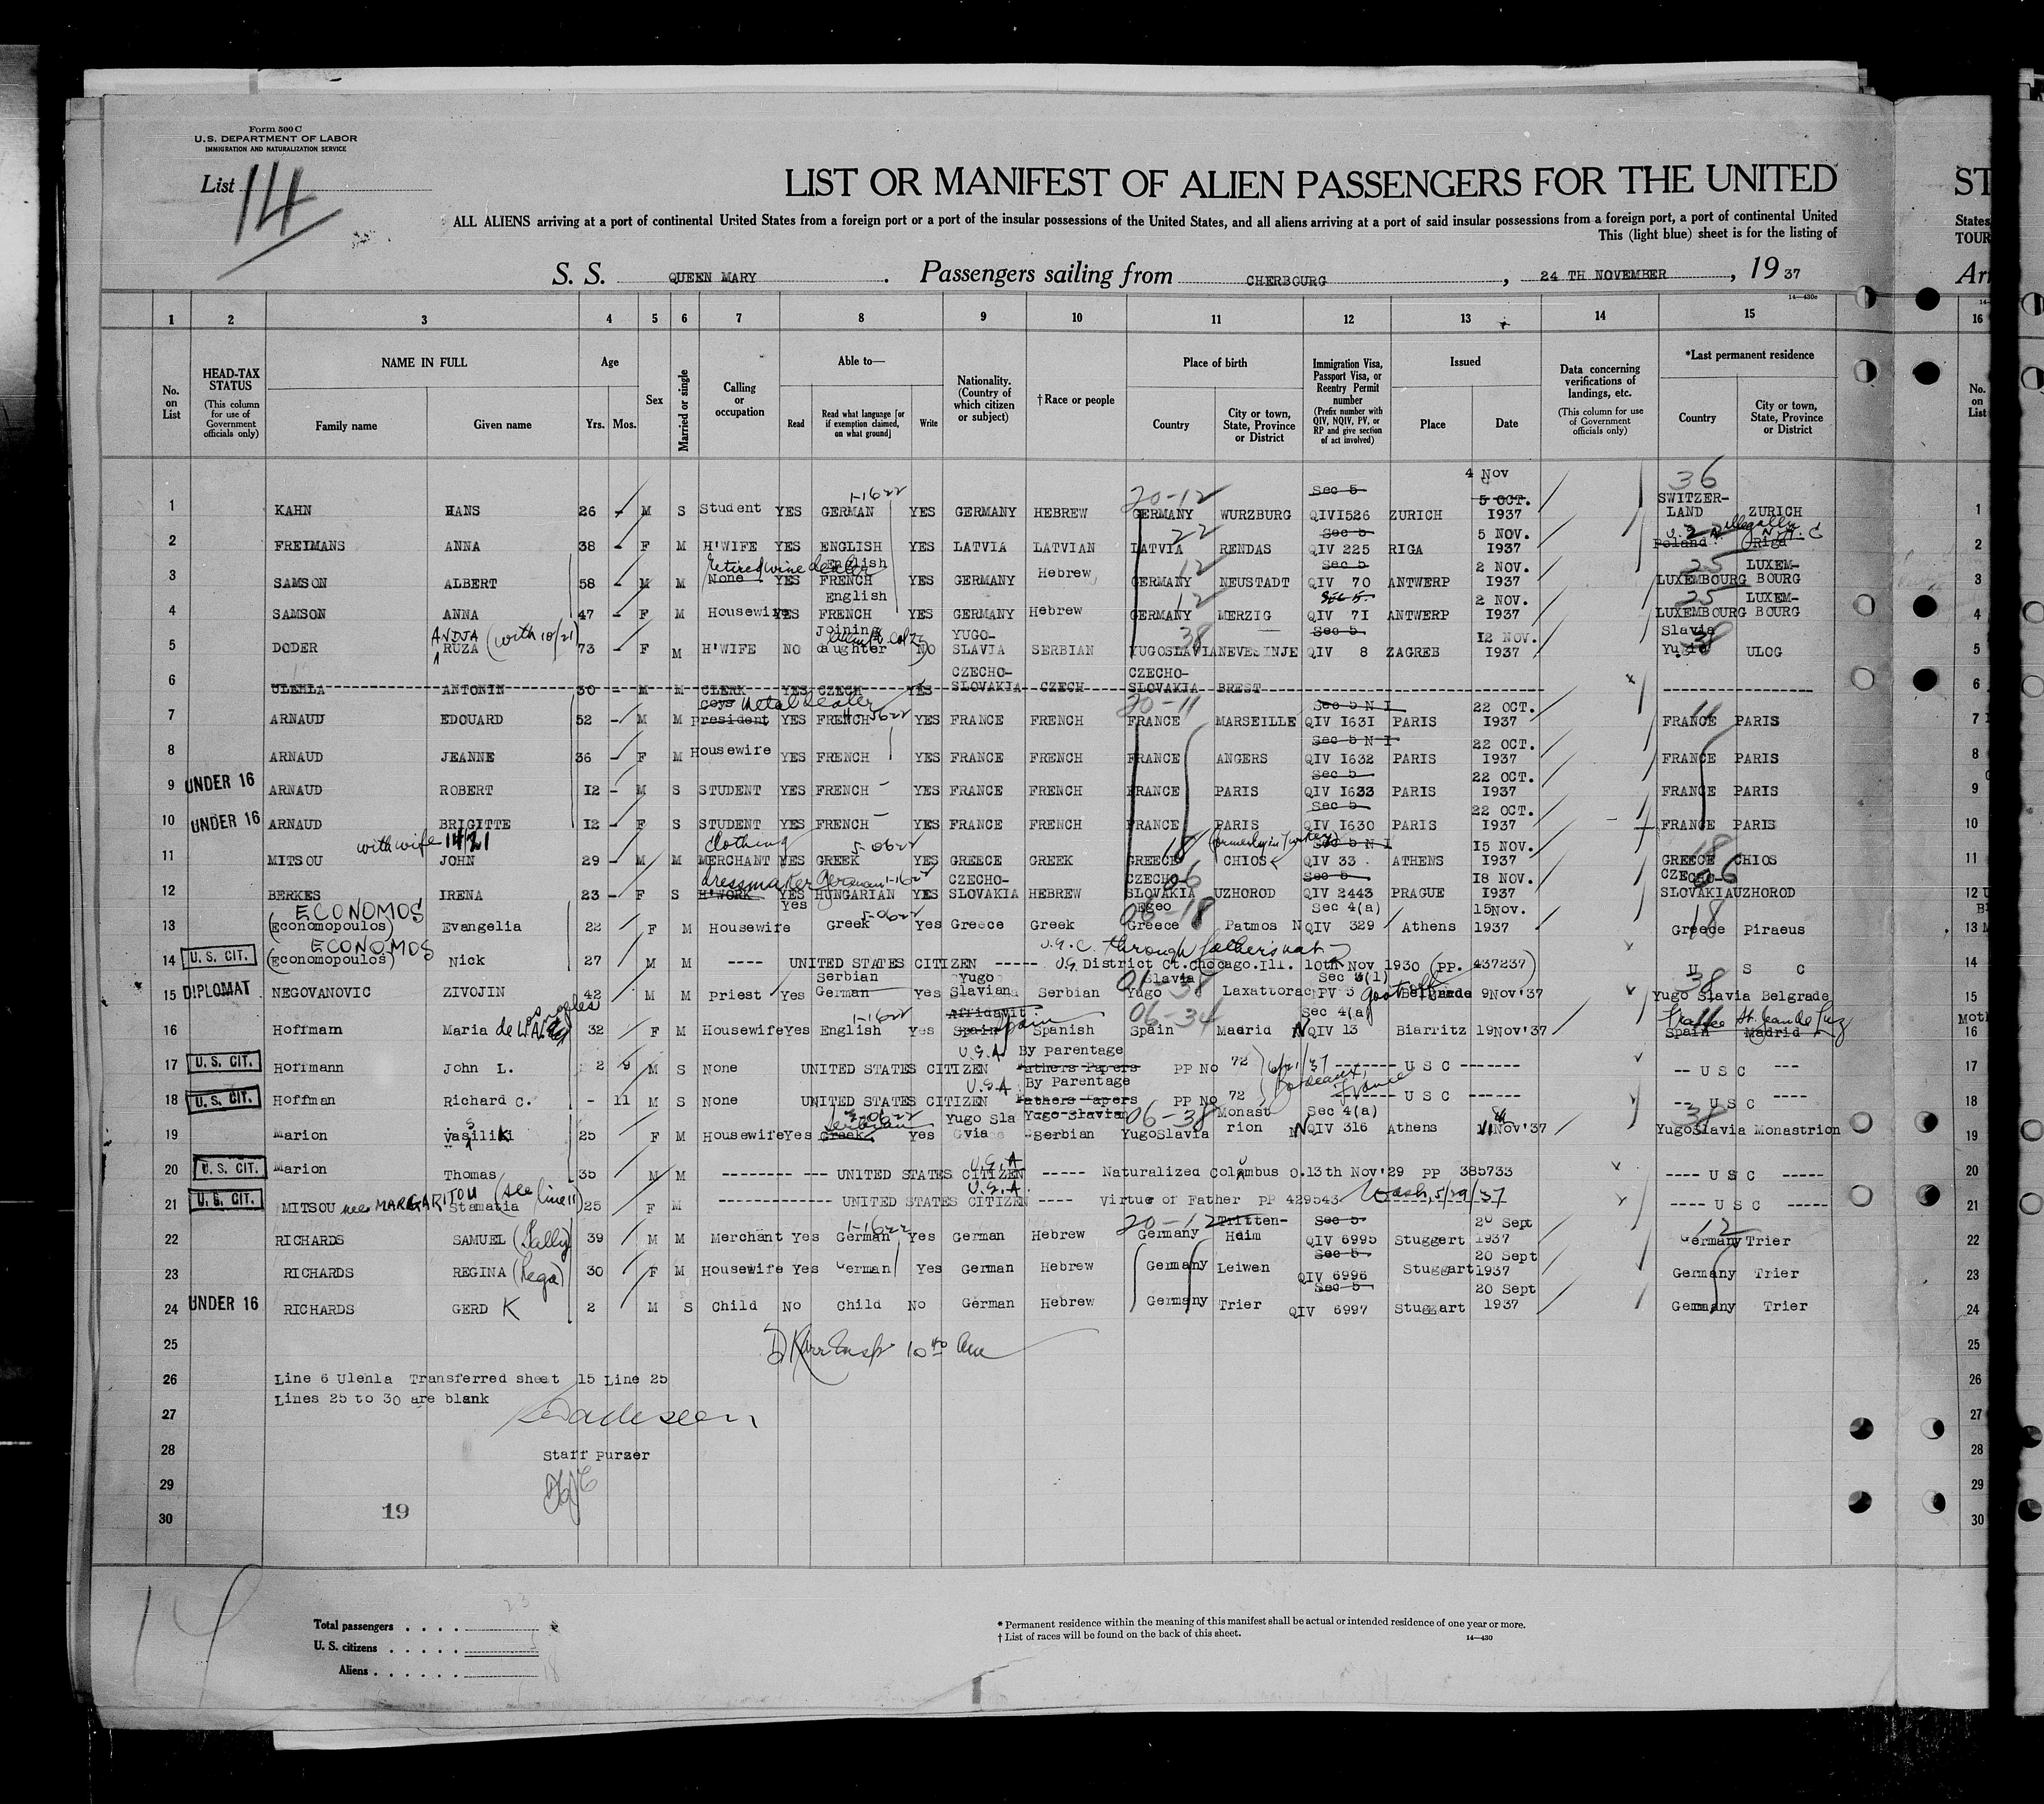 Form 500 C
U.S. DEPARTMENT OF LABOR
IMMIGRATION AND NATURALIZATION SERVICE
List 14
LIST OR MANIFEST OF ALIEN PASSENGERS FOR THE UNITED
ST
ALL ALIENS arriving at a port of continental United States from a foreign port or a port of the insular possessions of the United States, and all aliens arriving at a port of said insular possessions from a foreign port, a port of continental United
States
This (light blue) sheet is for the listing of
TOUR
S. S. QUEEN MARY. Passengers sailing from CHERBOURG, 24 TH NOVEMBER, 19 37
14—430c
1 2 3 4 5 6 7 8 9 10 11 12 13 14 15 16
No. on List
HEAD-TAX STATUS (This column for use of Government officials only)
NAME IN FULL Family name Given name
Age Yrs. Mos.
Sex
Married or single
Calling or occupation
Able to— Read Read what language [or if exemption claimed, on what ground] Write
Nationality. (Country of which citizen or subject)
†Race or people
Place of birth Country City or town, State, Province or District
Immigration Visa, Passport Visa, or Reentry Permit number (Prefix number with QIV, NQIV, PV, or RP and give section of act involved)
Issued Place Date
Data concerning verifications of landings, etc. (This column for use of Government officials only)
*Last permanent residence Country City or town, State, Province or District
No. on List
1 KAHN HANS 26 - M S Student YES GERMAN 1-1622 YES GERMANY HEBREW 20-12 GERMANY WURZBURG Sec 5 QIV1526 ZURICH 4 Nov 5 OCT. 1937 36 SWITZER-LAND ZURICH 1
2 FREIMANS ANNA 38 - F M H'WIFE YES ENGLISH YES LATVIA LATVIAN 22 LATVIA RENDAS Sec 5 QIV 225 RIGA 5 NOV. 1937 Poland Riga illegally 2
3 SAMSON ALBERT 58 - M M Retired wine dealer None YES English FRENCH YES GERMANY Hebrew 12 GERMANY NEUSTADT Sec 5 QIV 70 ANTWERP 2 NOV. 1937 25 LUXEMBOURG LUXEM-BOURG 3
4 SAMSON ANNA 47 - F M Housewife YES English FRENCH YES GERMANY Hebrew 12 GERMANY MERZIG SEC 5. QIV 71 ANTWERP 2 NOV. 1937 25 LUXEMBOURG LUXEM-BOURG 4
5 DODER ANDJA RUZA (with 10/21) 73 - F M H'WIFE NO Joining daughter NO YUGO-SLAVIA SERBIAN 38 YUGOSLAVIA NEVESINJE Sec 5 QIV 8 ZAGREB 12 NOV. 1937 Slavia Yugo 38 ULOG 5
6 ULEHLA ANTONIN 30 - M M CLERK YES CZECH YES CZECHO-SLOVAKIA CZECH CZECHO-SLOVAKIA BREST 6
7 ARNAUD EDOUARD 52 - M M Metal dealer president YES FRENCH YES FRANCE FRENCH 20-11 FRANCE MARSEILLE Sec 5 N I QIV 1631 PARIS 22 OCT. 1937 11 FRANCE PARIS 7
8 ARNAUD JEANNE 36 - F M Housewife YES FRENCH YES FRANCE FRENCH FRANCE ANGERS Sec 5 N I QIV 1632 PARIS 22 OCT. 1937 FRANCE PARIS 8
9 UNDER 16 ARNAUD ROBERT 12 - M S STUDENT YES FRENCH YES FRANCE FRENCH FRANCE PARIS Sec 5 QIV 1633 PARIS 22 OCT. 1937 FRANCE PARIS 9
10 UNDER 16 ARNAUD BRIGITTE 12 - F S STUDENT YES FRENCH YES FRANCE FRENCH FRANCE PARIS Sec 5 QIV 1630 PARIS 22 OCT. 1937 FRANCE PARIS 10
11 MITSOU with wife 14/21 JOHN 29 - M M clothing MERCHANT YES GREEK 5-0622 YES GREECE GREEK 18 GREECE CHIOS (formerly in Turkey) Sec 5 N I QIV 33 . ATHENS 15 NOV. 1937 18 GREECE CHIOS 11
12 BERKES IRENA 23 - F S dressmaker H'WORK YES German 1-1622 HUNGARIAN YES CZECHO-SLOVAKIA HEBREW 06 CZECHO-SLOVAKIA UZHOROD Sec 5 QIV 2443 PRAGUE 18 NOV. 1937 06 CZECHO-SLOVAKIA UZHOROD 12
13 ECONOMOS (Economopoulos) Evangelia 22 F M Housewife Yes Greek 5-0622 Yes Greece Greek 06-18 Egeo Greece Patmos Sec 4(a) NQIV 329 Athens 15Nov. 1937 18 Greece Piraeus 13
14 U. S. CIT. ECONOMOS (Economopoulos) Nick 27 M M ---- UNITED STATES CITIZEN ----- U.S.C. through father's nat US District Ct.Chocago.Ill. 10th Nov 1930 (PP. 437237) U S C 14
15 DIPLOMAT NEGOVANOVIC ZIVOJIN 42 M M Priest Yes Serbian German Yes Yugo Slavian Serbian 01-38 Slavia Yugo Laxattorac Sec 3(1) PV 3 Belgrade 9Nov'37 38 Yugo Slavia Belgrade 15
16 Hoffmann Maria de los Angeles 32 F M Housewife Yes English 1-1622 Yes Affidavit Spain Spain Spanish 06-34 Spain Madrid Sec 4(a) NQIV 13 Biarritz 19Nov'37 France St. Jean de Luz Spain Madrid 16
17 U. S. CIT. Hoffmann John L. 2 9 M S None UNITED STATES CITIZEN U.S.A. By parentage Fathers Papers PP No 72 6/21/37 ------ U S C ------- -- U S C --- 17
18 U. S. CIT. Hoffman Richard C. - 11 M S None UNITED STATES CITIZEN U.S.A. By Parentage Fathers Papers PP No 72 Bordeaux, France ----- U S C ------ -- U S C ---- 18
19 Marion Vasiliki 25 F M Housewife Yes Serbian Greek 3-0622 Yes Yugo Slavia Yugo-Slavian Serbian 06-38 YugoSlavia Monastrion Sec 4(a) NQIV 316 Athens 11Nov'37 38 YugoSlavia Monastrion 19
20 U. S. CIT. Marion Thomas 35 M M -------- --- UNITED STATES CITIZEN U.S.A ----- Naturalized Columbus O.13th Nov'29 PP 385733 ---- U S C ----- 20
21 U. S. CIT. MITSOU nee MARGARITOU (see line 11) Stamatia 25 F M ------------ UNITED STATES CITIZEN U.S.A. ---- Virtue of Father PP 429543 Wash, 5/29/37 ---- U S C ----- 21
22 RICHARDS SAMUEL (Sally) 39 M M Merchant Yes German 1-1622 Yes German Hebrew 20-12 Germany Tritten-Heim Sec 5 QIV 6995 Stuggert 20 Sept 1937 12 Germany Trier 22
23 RICHARDS REGINA (Rega) 30 F M Housewife Yes German Yes German Hebrew Germany Leiwen Sec 5 QIV 6996 Stuggart 20 Sept 1937 Germany Trier 23
24 UNDER 16 RICHARDS GERD K 2 M S Child No Child No German Hebrew Germany Trier Sec 5 QIV 6997 Stuggart 20 Sept 1937 Germany Trier 24
25 25
26 Line 6 Ulehla Transferred sheet 15 Line 25 26
Lines 25 to 30 are blank
27 27
28 Staff Purser 28
29 29
30 19 30
14
Total passengers . . . . 23
U. S. citizens . . . . . 5
Aliens . . . . . . 18
* Permanent residence within the meaning of this manifest shall be actual or intended residence of one year or more.
† List of races will be found on the back of this sheet.
14—430